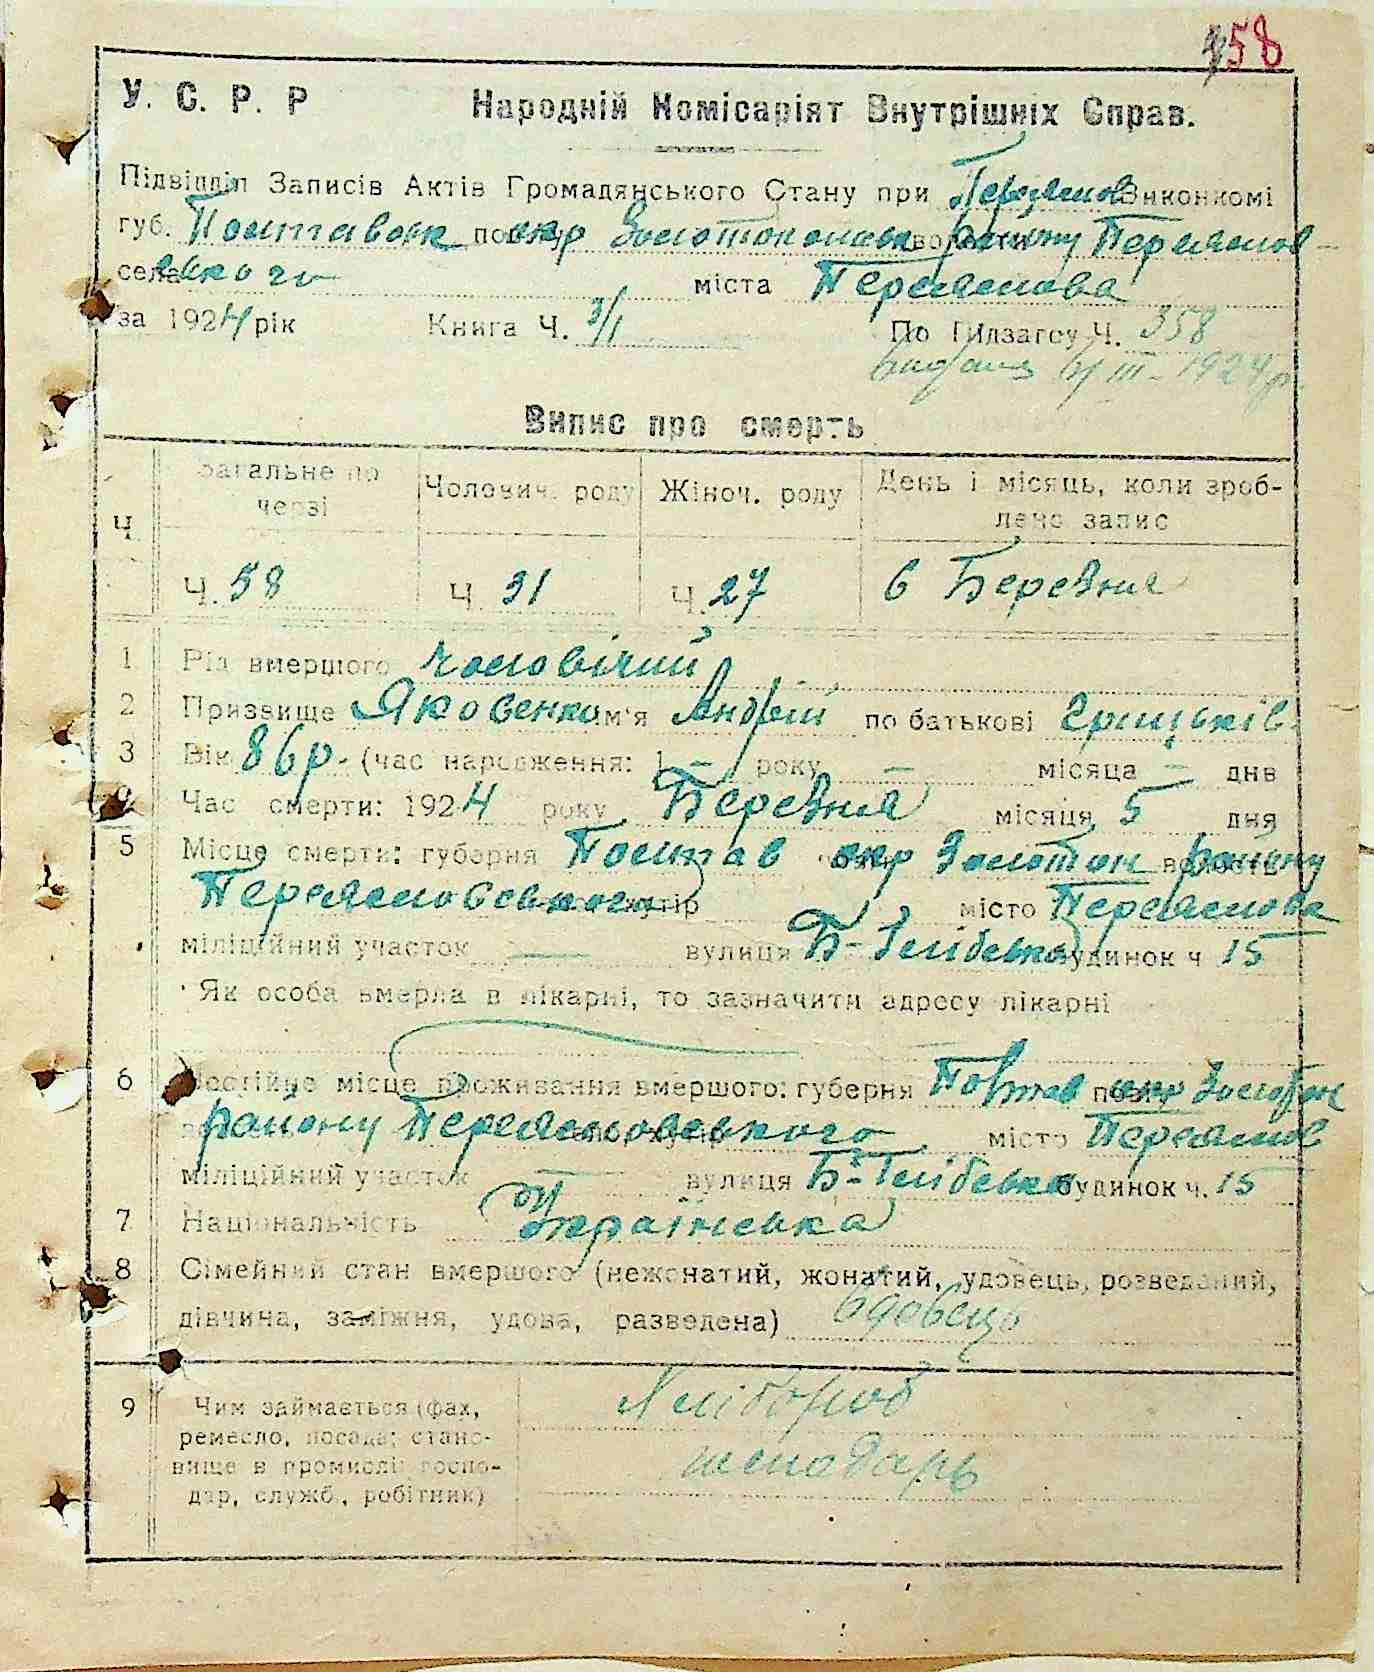 58
У. С. Р. Р Народній Комісаріят Внутрішніх Справ.
Підвідділ Записів Актів Громадянського Стану при Переясов Виконкомі
губ. Полтавськ окр Золотоноськ району Переяслов-
села ського міста Переяслова
за 1924 рік Книга Ч. 3/1 По Підзагсу Ч. 358
6/III - 1924 р.
Випис про смерть
Ч Загальне по черзі Чоловіч. роду Жіноч. роду День і місяць, коли зроб-
лено запис
Ч. 58 Ч. 31 Ч. 27 6 Березня
1 Рід вмершого чоловічий
2 Призвище Яковенко им'я Андрій по батькові Грицьків
3 Вік 86 р. (час народження: 1 — року — місяца — днв
Час смерти: 1924 року Березня місяця 5 дня
5 Місце смерти: губерня Полтав окр Золотон волость району
Переясловського хутір місто Переяслова
міліційний участок — вулиця Б-Глібська будинок ч 15
Як особа вмерла в лікарні, то зазначити адресу лікарні
6 Постійне місце проживання вмершого: губерня Полтав окр Золотон
району Переясловського місто Переяслов
міліційний участок — вулиця Б-Глібська будинок ч. 15
7 Національність Українська
8 Сімейний стан вмершого (нежонатий, жонатий, удовець, розведаний,
дівчина, заміжня, удова, разведена) вдовець
9 Чим займається (фах, Хлібороб
ремесло, посада; стано-
вище в промислі: госпо- господарь
дар, служб., робітник)